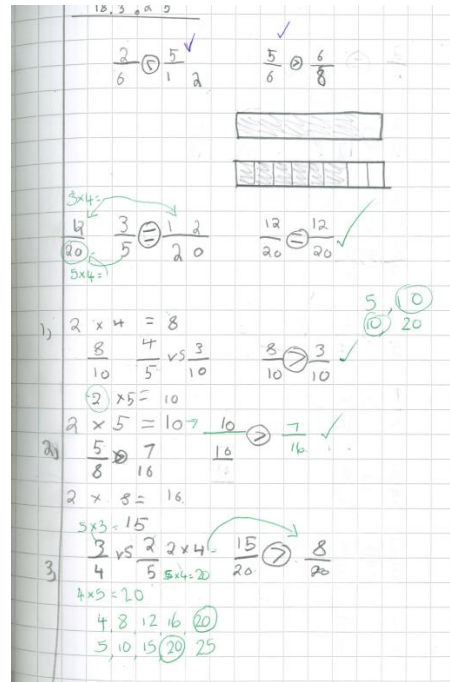 18.3.25
2/6 < 5/12 ✓
✓ 5/6 > 6/8
3×4=
12/20 = 3/5 = 12/20
12/20 = 12/20 ✓
5×4=
5, 10
10, 20
1) 2 × 4 = 8
8/10 4/5 vs 3/10 8/10 > 3/10 ✓
2 × 5 = 10
2) 2 × 5 = 10 → 10/16 > 7/16 ✓
5/8 > 7/16
2 × 8 = 16
5×3=15
3) 3/4 vs 2/5 2×4= 15/20 > 8/20
5×4=20
4×5=20
4, 8, 12, 16, 20
5, 10, 15, 20, 25